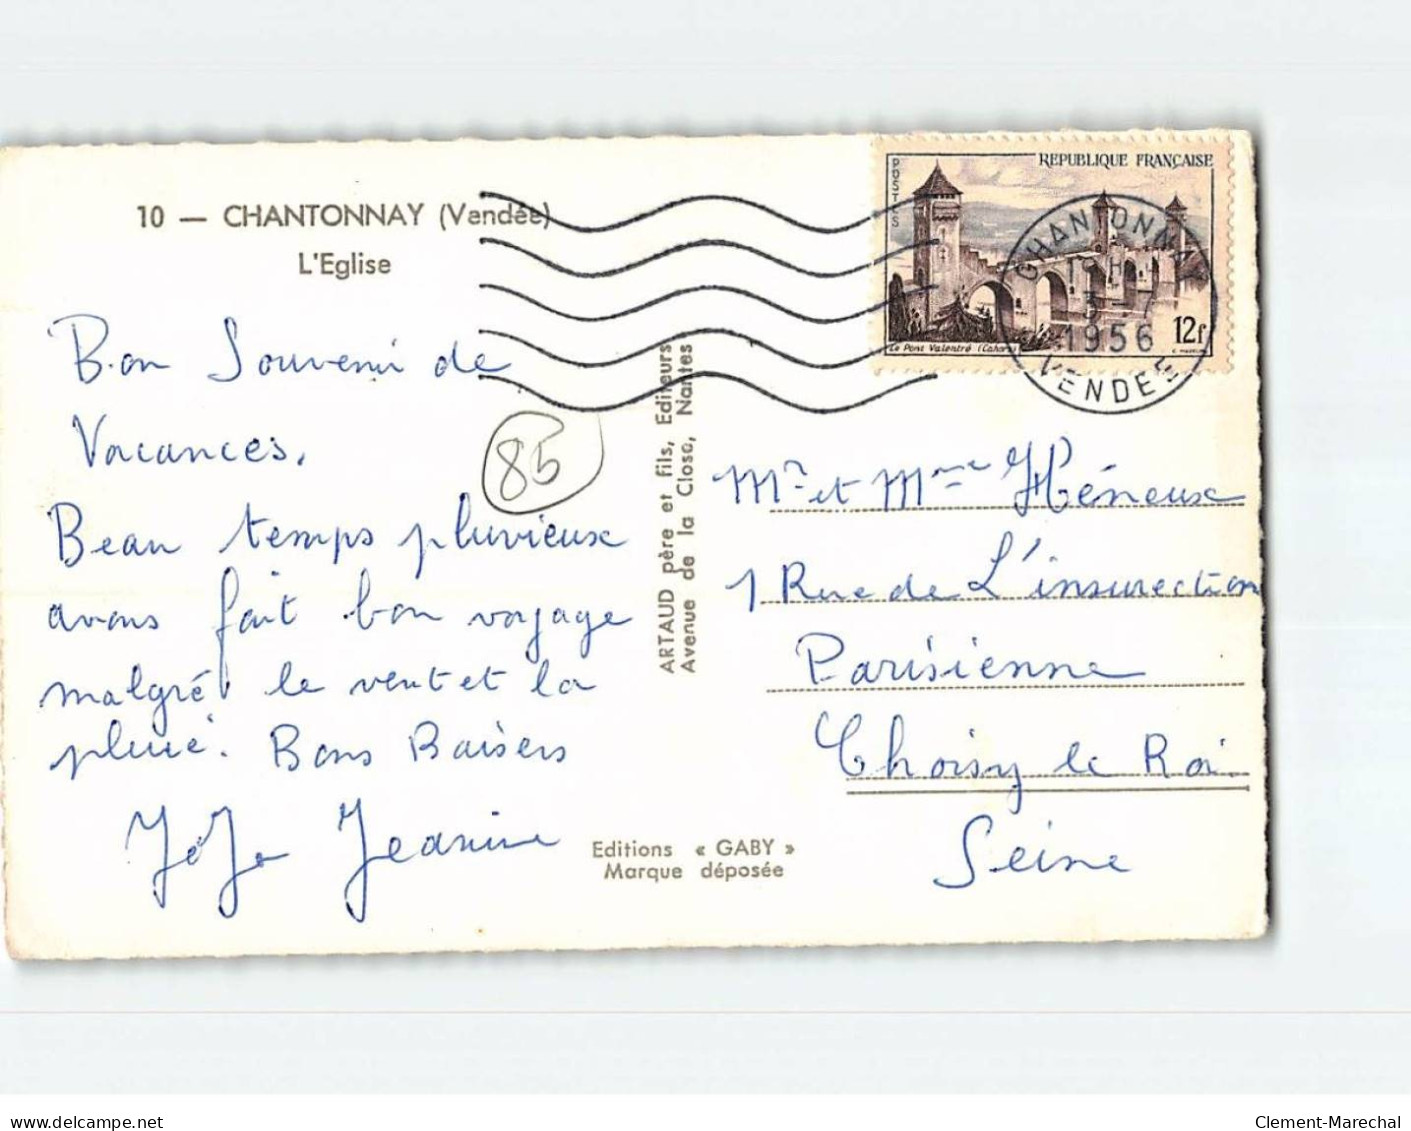 10 — CHANTONNAY (Vendée)
L'Eglise
Bon Souvenir de
Vacances.
Beau temps pluvieux
avons fait bon voyage
malgré le vent et la
pluie. Bons Baisers
JoJo Jeanine
85
ARTAUD père et fils, Editeurs
Avenue de la Close, Nantes
Editions « GABY »
Marque déposée
POSTES
REPUBLIQUE FRANÇAISE
Le Pont Valentré (Cahors)
12f
CHANTONNAY
3-7
1956
VENDEE
Mr et Mme Héneux
1 Rue de L'insurection
Parisienne
Choisy le Roi.
Seine
delcampe.net
Clement-Marechal